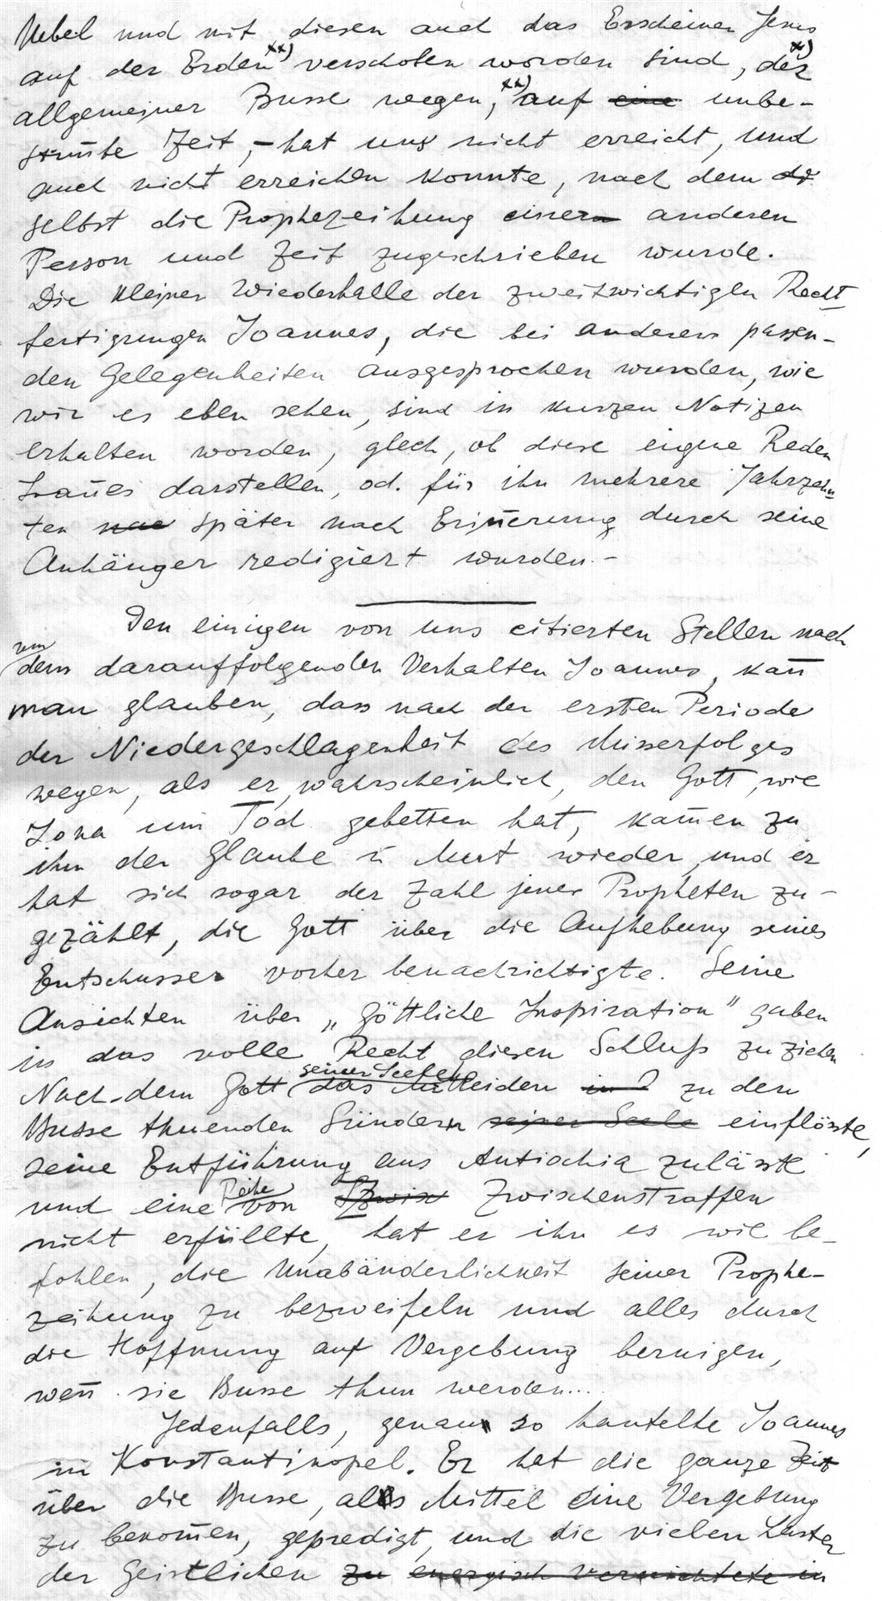 Uebel und mit diesen auch das Erscheinen Jesus
auf der Erden xx) verschoben worden sind, der x)
allgemeiner Busse wegen, xx) auf eine unbe-
stim̄te Zeit, - hat uns nicht erreicht, und
auch nicht erreichen konnte, nach dem
selbst die Prophezeihung einer anderen
Person und Zeit zugeschrieben wurde.
Die kleinen Wiederhalle der zweitwichtigen Recht-
fertigungen Joannes, die bei anderen passen-
den Gelegenheiten ausgesprochen wurden, wie
wir es eben sehen, sind in kurzen Notizen
erhalten worden, glech, ob diese eigene Reden
Joan̄es darstellen, od. für ihn mehrere Jahrzehn
ten nac später nach Erin̄erung durch seine
Anhänger redigiert wurden. -
Den einigen von uns citierten Stellen nach
dem darauffolgenden Verhalten Joannes, kan̄
man glauben, dass nach der ersten Periode
der Niedergeschlagenheit des Misserfolges
wegen, als er, wahrscheinlich, den Gott, wie
Jona um Tod gebetten hat, kam̄en zu
ihm der Glaube u Mut wieder, und er
hat sich sogar der Zahl jener Propheten zu-
gezählt, die Gott über die Aufhebung seines
Entschusser vorher benachrichtigte. Seine
Ansichten über „Göttliche Inspiration" gaben
in das volle Recht diesen Schluß zu ziehen
Nach-dem Gott seiner Seele das Mitleiden zu den
Busse thuenden Sündern seiner Seele einflösste,
seine Entführung aus Antiochia zulässt
und eine Reihe von Zwisc Zwischenstraffen
nicht erfüllte, hat er ihn es wie be-
fohlen, die Unabänderlichkeit seiner Prophe-
zeihung zu bezweifeln und alles durch
die Hoffnung auf Vergebung beruigen,
wen̄ sie Busse thun werden...
Jedenfalls, genau so hantelte Joannes
in Konstantinopel. Er hat die ganze Zeit
über die Busse, als Mittel eine Vergebung
zu bekom̄en, gepredigt, und die vielen Laster
der Geistlichen zu energisch vernichtete in